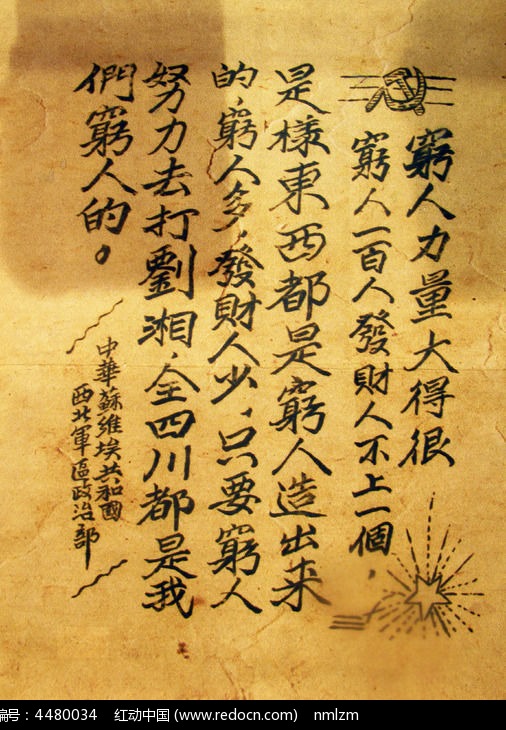 窮人力量大得很
窮人一百人發財人不上一個，
是樣東西都是窮人造出来
的，窮人多，發財人少，只要窮人
努力去打劉湘，全四川都是我
們窮人的。
中華蘇維埃共和國
西北軍區政治部
编号：4480034 红动中国 (www.redocn.com) nmlzm